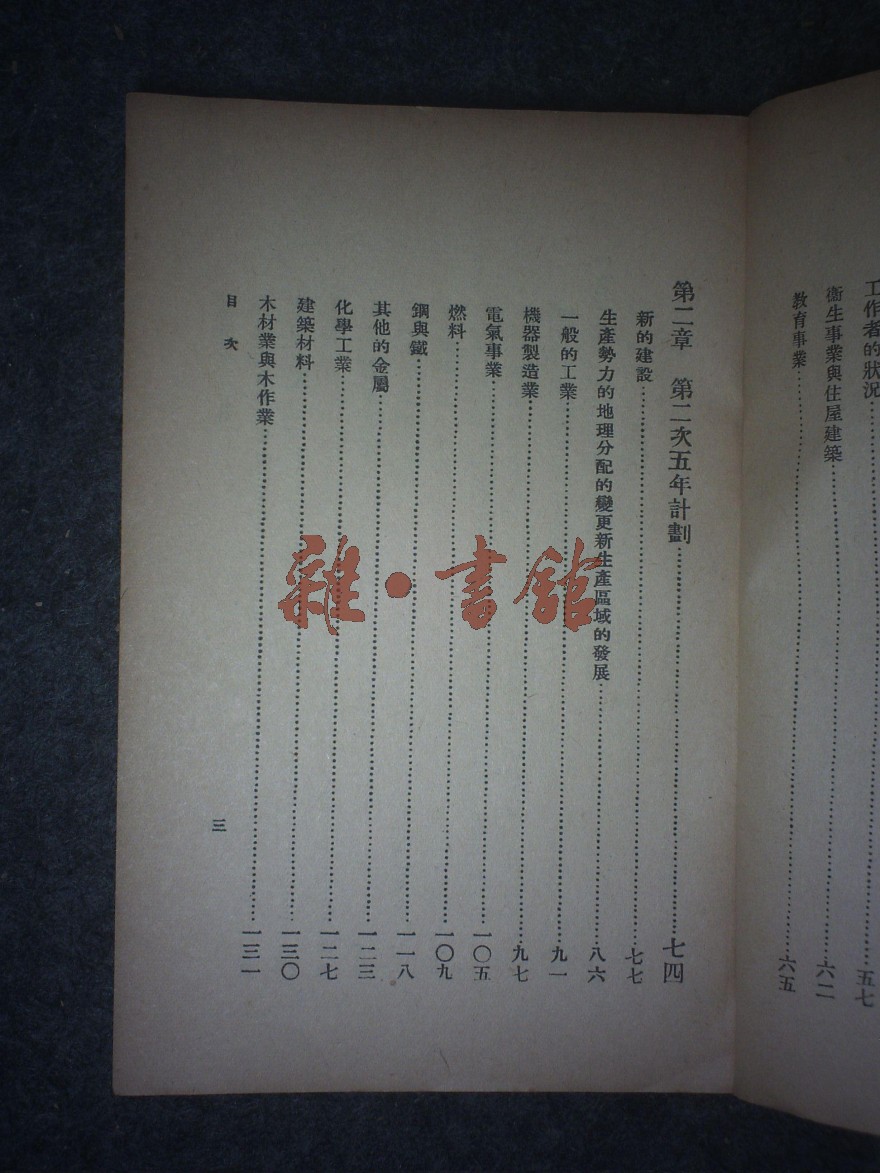 工作者的狀況……五七
衞生事業與住屋建築……六二
教育事業……六五
第二章 第二次五年計劃……七四
新的建設……七七
生產勢力的地理分配的變更新生產區域的發展……八六
一般的工業……九一
機器製造業……九七
電氣事業……一〇五
燃料……一〇九
鋼與鐵……一一八
其他的金屬……一二三
化學工業……一二七
建築材料……一三〇
木材業與木作業……一三一
目次
三
雜·書館